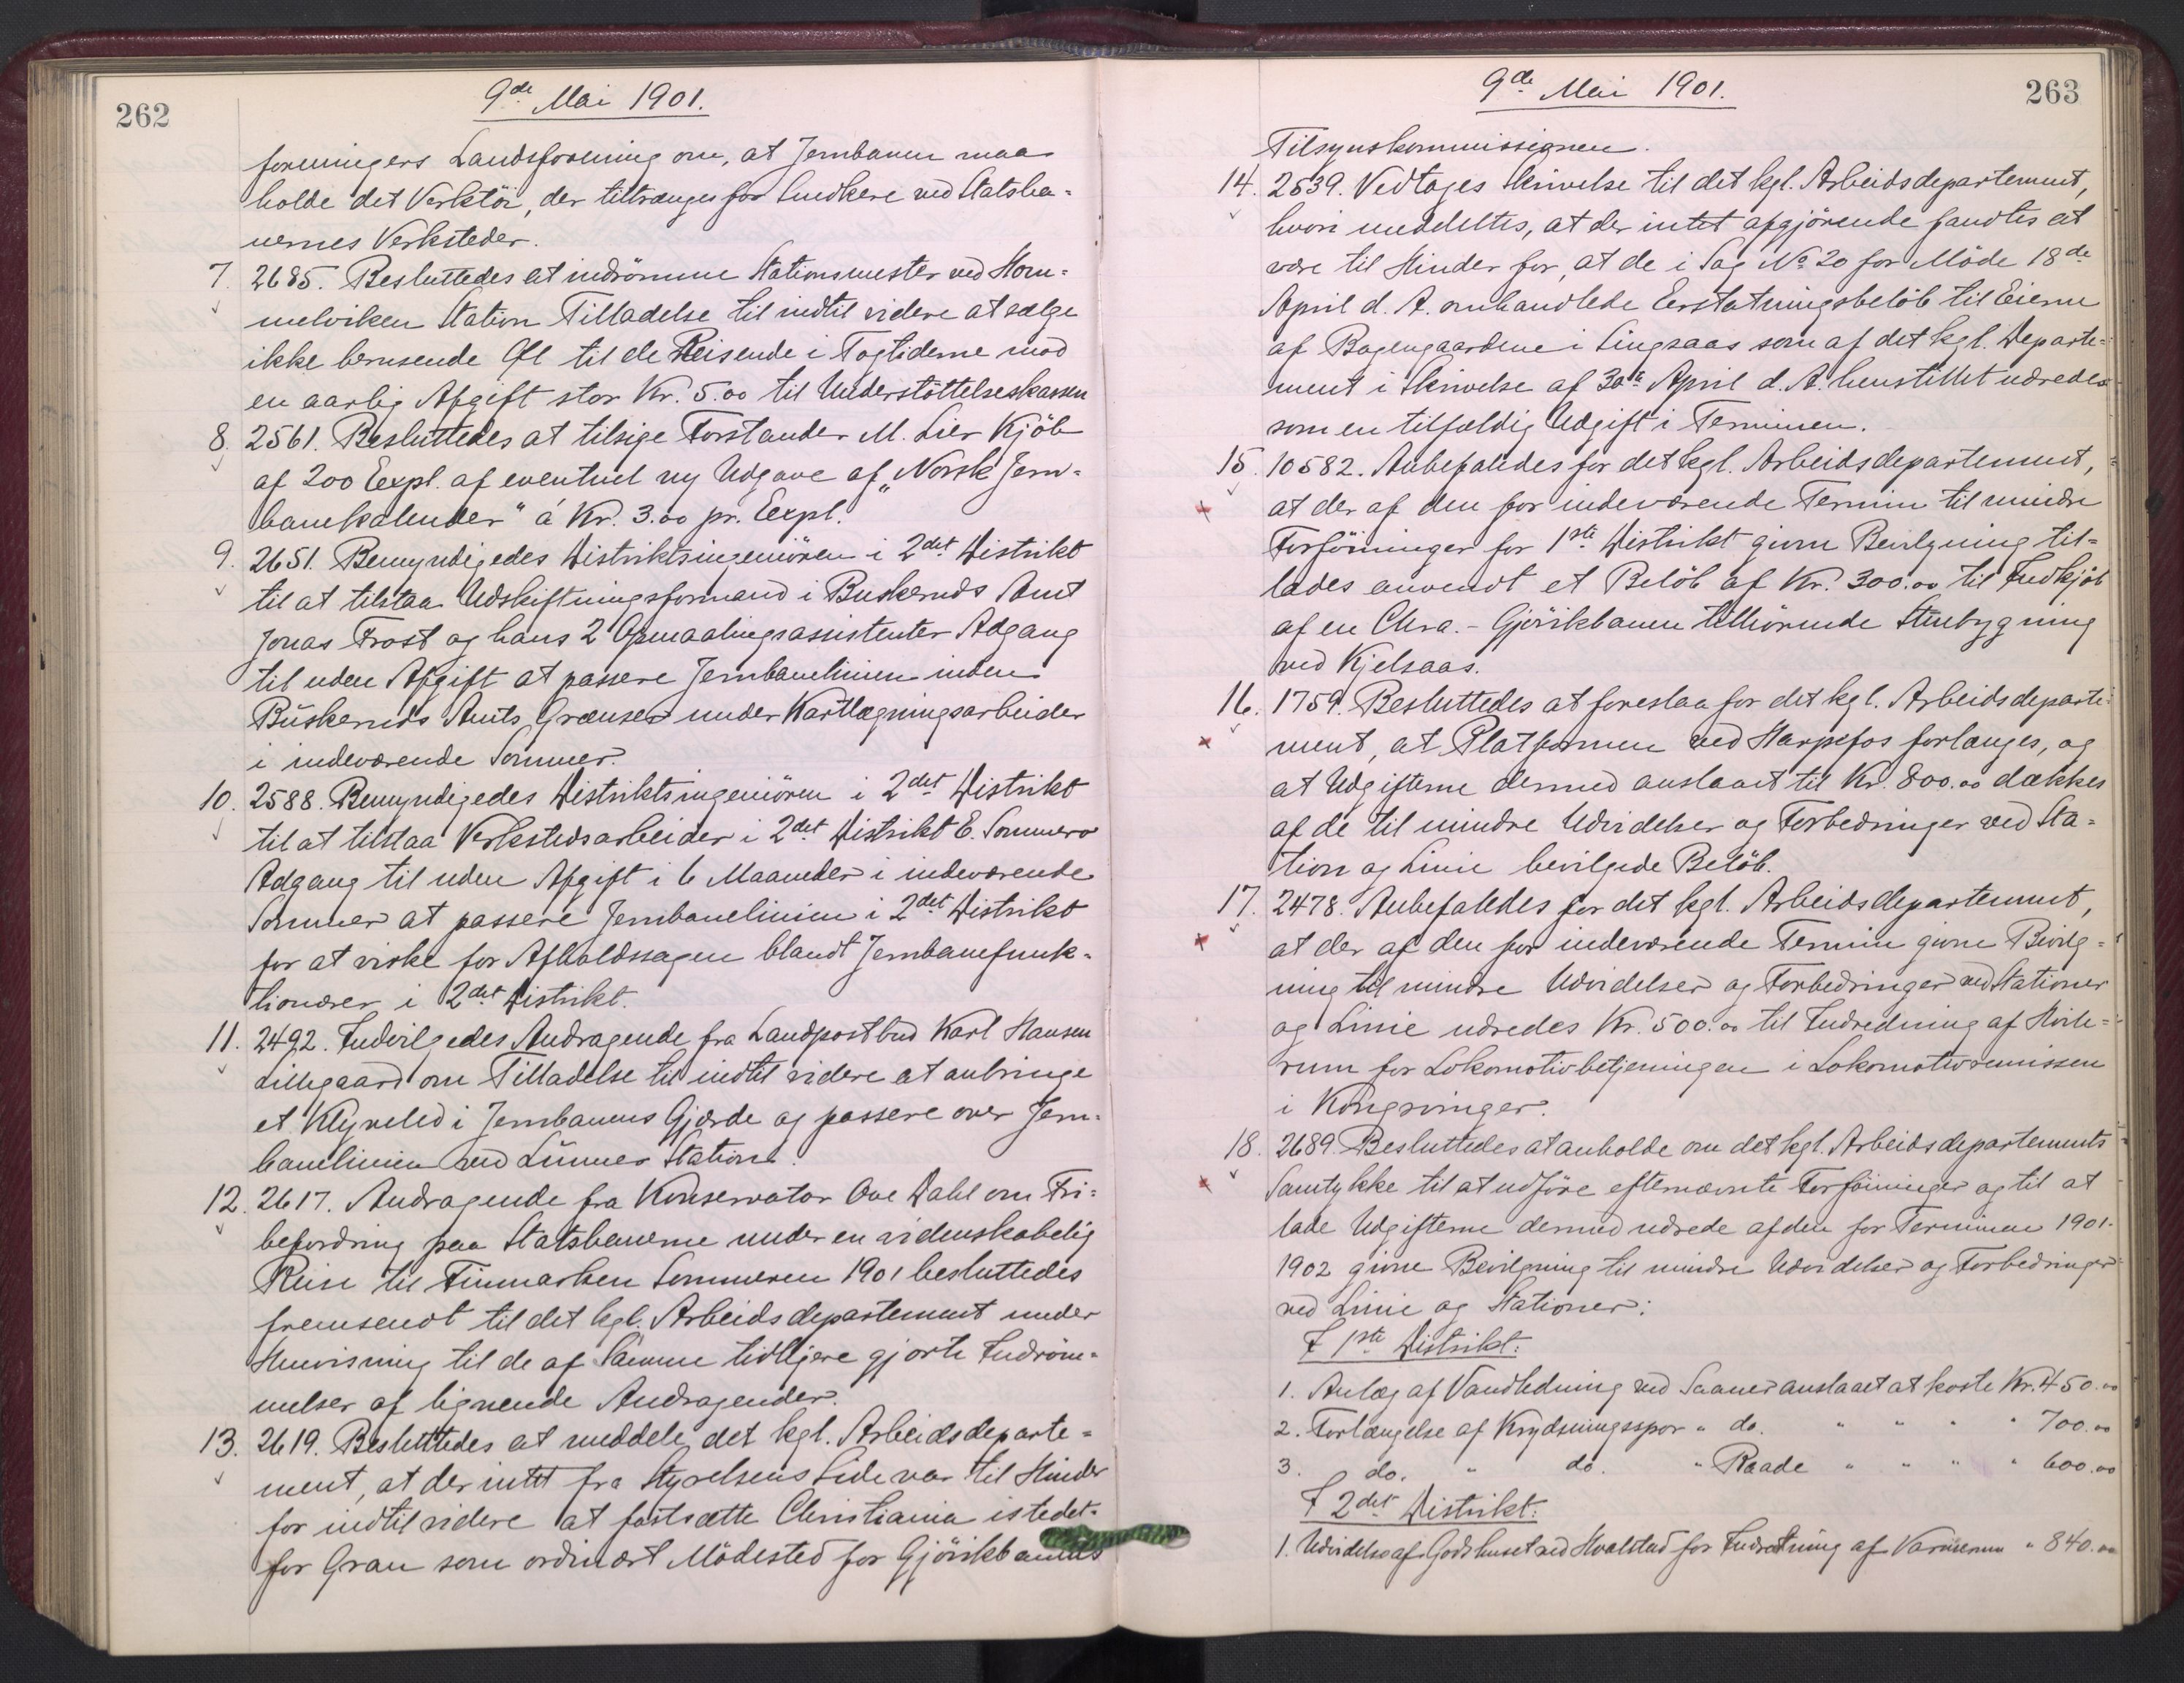 262
9de Mai 1901.
foreningers Landsforening om, at Jernbanen maa
holde det Verktöi, der tiltrænges for Snedkere ved Statsba-
nernes Verksteder.
7. 2685. Besluttedes at indrömme Stationsmester ved Hom-
melviken Station Tilladelse til indtil videre at sælge
ikke berusende Öl til de Reisende i Togtiderne mod
en aarlig Afgift stor Kr. 5.00 til Understöttelseskassen
8. 2561. Besluttedes at tilsige Forstander M. Lier Kjöb
af 200 Expl. af eventuel ny Udgave af "Norsk Jern-
banekalender" á Kr. 3.00 pr. Expl.
9. 2651. Bemyndigedes Distriktsingeniören i 2det Distrikt
til at tilstaa Udskiftningsformand i Buskeruds Amt
Jonas Frost og hans 2 Opmaalingsassistenter Adgang
til uden Afgift at passere Jernbanelinien inden
Buskeruds Amts Grænser under Kartlægningsarbeider
i indeværende Sommer.
10. 2588. Bemyndigedes Distriktsingeniören i 2det Distrikt
til at tilstaa Verkstedsarbeider i 2det Distrikt E. Sommero
Adgang til uden Afgift i 6 Maaneder i indeværende
Sommer at passere Jernbanelinien i 2det Distrikt
for at virke for Afholdssagen blandt Jernbanefunk-
tionærer i 2det Distrikt.
11. 2492. Indvilgedes Andragende fra Landpostbud Karl Hansen
Lillegaard om Tilladelse til indtil videre at anbringe
et Klyveled i Jernbanens Gjærde og passere over Jern-
banelinien ved Lunner Station.
12. 2617. Andragende fra Konservator Ove Dahl om Fri-
befordring paa Statsbanerne under en videnskabelig
Reise til Finmarken Sommeren 1901 besluttedes
fremsendt til det kgl. Arbeidsdepartement under
Henvisning til de af Samme tidligere gjorte Indröm-
melser af lignende Andragender.
13. 2619. Besluttedes at meddele det kgl. Arbeidsdeparte-
ment, at der intet fra Styrelsens Side var til Hinder
for indtil videre at fastsætte Christiania istedet-
for Gran som ordinært Mödested for Gjövikbanens
9de Mai 1901.
263
Tilsynskommissionen.
14. 2639. Vedtoges Skrivelse til det kgl. Arbeidsdepartement,
hvori meddeltes, at der intet afgjörende fandtes at
være til Hinder for, at de i Sag No 20 for Möde 18de
April d. A. omhandlede Erstatningsbelöb til Eierne
af Bogengaardene i Singsaas som af det kgl. Departe-
ment i Skrivelse af 30te April d. A. henstillet udredes
som en tilfældig Udgift i Terminen.
15. 10582. Anbefaledes for det kgl. Arbeidsdepartement,
at der af den for indeværende Termin til mindre
Forföininger for 1ste Distrikt givne Bevilgning til-
lades anvendt et Belöb af Kr. 300.00 til Indkjöb
af en Chra.-Gjövikbanen tilhörende Stenbygning
ved Kjelsaas.
16. 1759. Besluttedes at foreslaa for det kgl. Arbeidsdeparte-
ment, at Platformen ved Harpefos forlænges, og
at Udgifterne dermed anslaaet til Kr. 800.00 dækkes
af de til mindre Udvidelser og Forbedringer ved Sta-
tion og Linie bevilgede Belöb.
17. 2478. Anbefaledes for det kgl. Arbeidsdepartement,
at der af den for indeværende Termin givne Bevilg-
ning til mindre Udvidelser og Forbedringer ved Stationer
og Linie udredes Kr. 500.00 til Indredning af Hvile-
rum for Lokomotivbetjeningen i Lokomotivremissen
i Kongsvinger.
18. 2689. Besluttedes at anholde om det kgl. Arbeidsdepartements
Samtykke til at udföre efternævnte Forföininger og til at
lade Udgifterne dermed udrede af den for Terminen 1901-
1902 givne Bevilgning til mindre Udvidelser og Forbedringer
ved Linie og Stationer:
I 1ste Distrikt:
1. Anlæg af Vandledning ved Saaner anslaaet at koste Kr. 450.00
2. Forlængelse af Krydsningsspor " do. " " " " 700.00
3. do. " do. " Raade " " " " 600.00
I 2det Distrikt:
1. Udvidelse af Godshuset ved Hvalstad for Indretning af Varmerum " 840.00